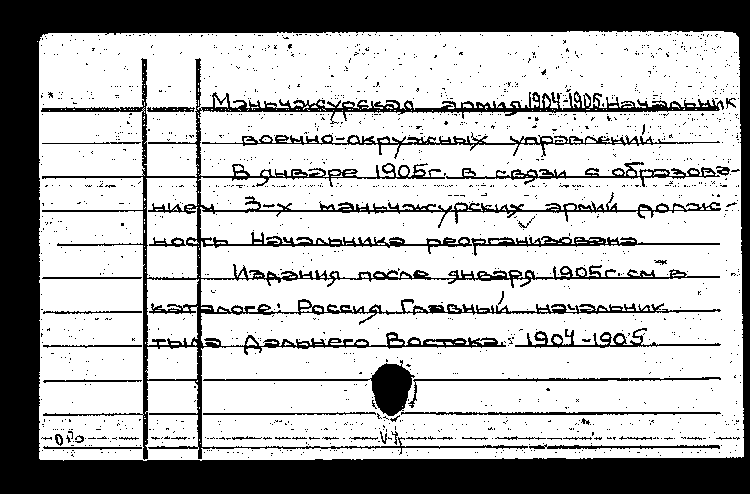 Маньчжурская армия. 1904-1905. Начальник
военно-окружных управлений.
В январе 1905г. в связи с образова-
нием 3-х маньчжурских армий долж-
ность Начальника реорганизована.
Издания после января 1905г. см. в
каталоге: Россия. Главный начальник
тыла Дальнего Востока. 1904-1905.